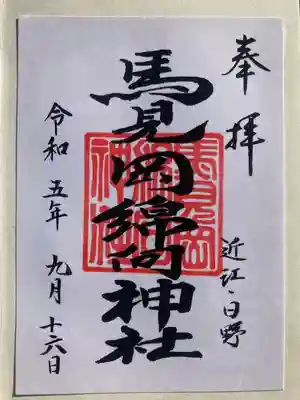 奉拝
近江・日野
馬見岡綿向神社
令和五年 九月 十六日